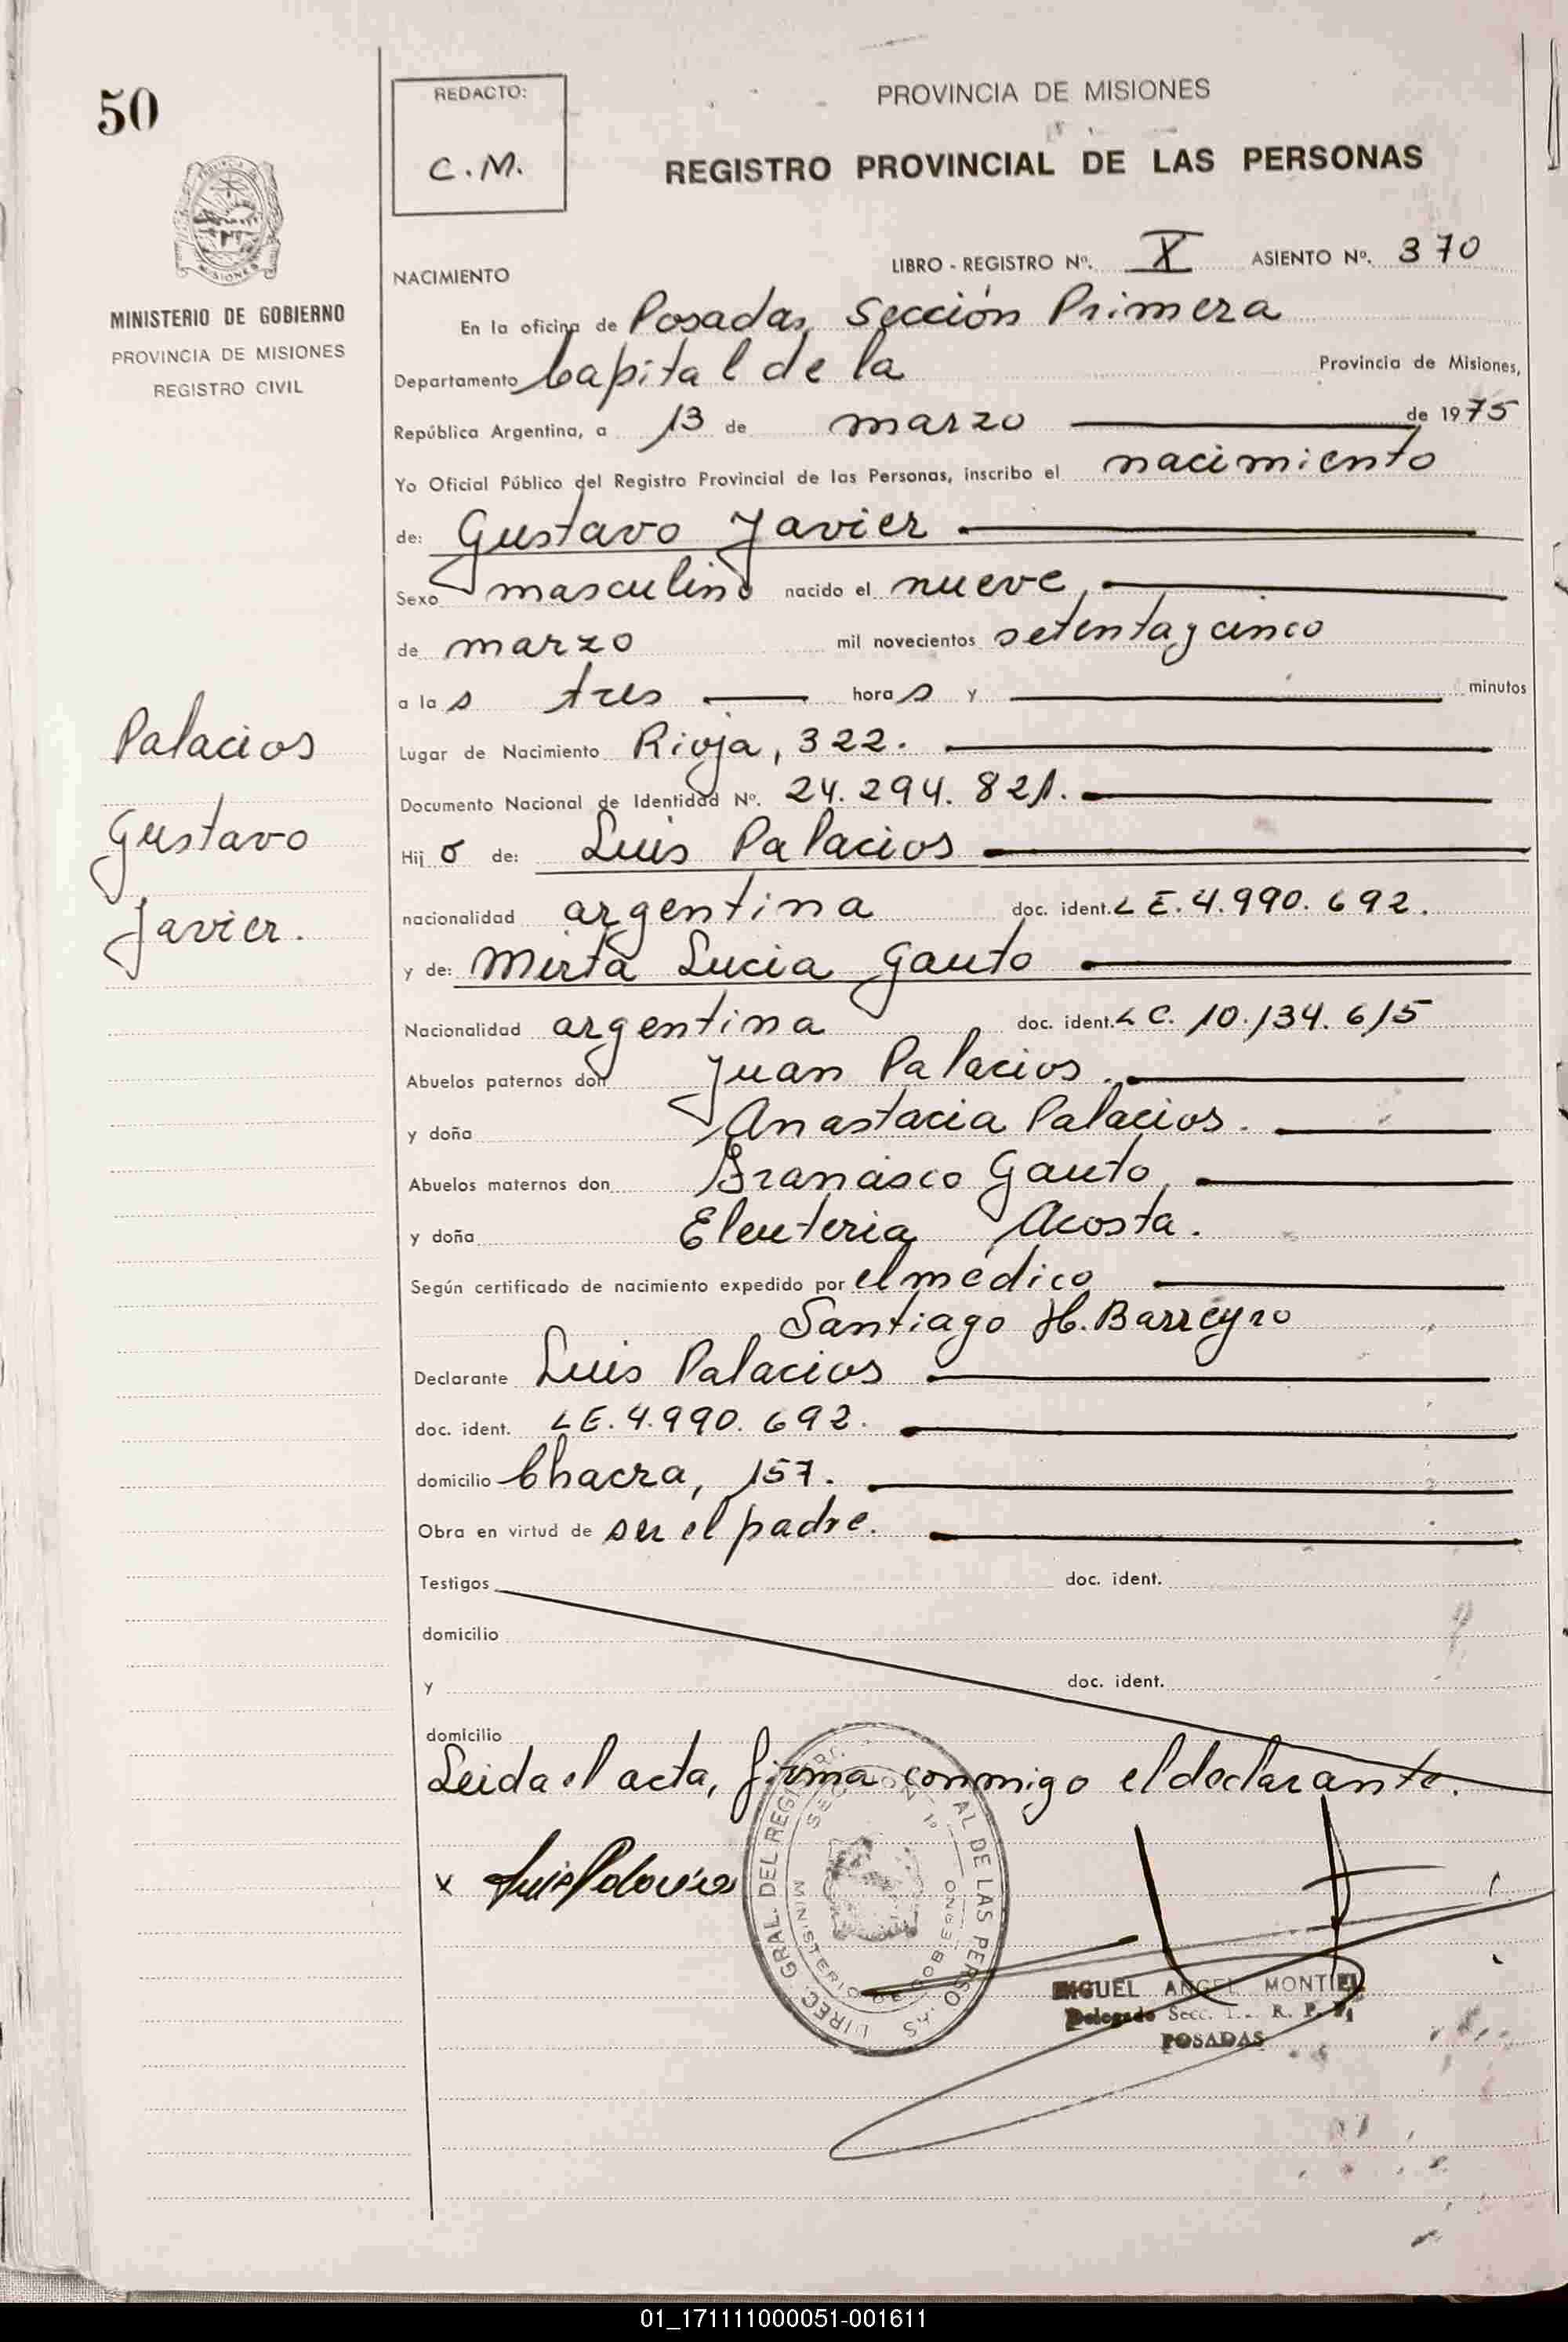 50
REDACTO:
C.M.
PROVINCIA DE MISIONES
REGISTRO PROVINCIAL DE LAS PERSONAS
MINISTERIO DE GOBIERNO
PROVINCIA DE MISIONES
REGISTRO CIVIL
NACIMIENTO
LIBRO - REGISTRO Nº. X ASIENTO Nº. 370
En la oficina de Posadas, Sección Primera
Departamento Capital de la Provincia de Misiones,
República Argentina, a 13 de marzo de 1975
Yo Oficial Público del Registro Provincial de las Personas, inscribo el nacimiento
de: Gustavo Javier
Sexo masculino nacido el nueve,
de marzo mil novecientos setenta y cinco
a la s tres hora s y minutos
Lugar de Nacimiento Rioja, 322.
Documento Nacional de Identidad Nº. 24.294.821.
Hij o de: Luis Palacios
nacionalidad argentina doc. ident. LE. 4.990.692.
y de: Mirta Lucia Gauto
Nacionalidad argentina doc. ident. LC. 10.134.615
Abuelos paternos don Juan Palacios.
y doña Anastacia Palacios.
Abuelos maternos don Francisco Gauto,
y doña Eleuteria Acosta.
Según certificado de nacimiento expedido por el médico
Santiago H. Barreyro
Declarante Luis Palacios
doc. ident. LE. 4.990.692.
domicilio Chacra, 157.
Obra en virtud de ser el padre.
Testigos doc. ident.
domicilio
y doc. ident.
domicilio
Leida el acta, firma conmigo el declarante.
x Luis Palacios
Palacios
Gustavo
Javier.
MINISTERIO DE GOBIERNO
MIGUEL ANGEL MONTIEL
Delegado Secc. 1.. R. P.
POSADAS
01_171111000051-001611